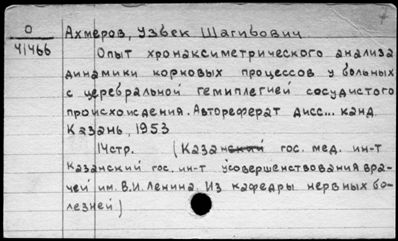 О
41466
Ахмеров, Узбек Шагибович
Опыт хронаксиметрического анализа
динамики корковых процессов у больных
с церебральной гемиплегией сосудистого
происхождения. Автореферат дисс... канд.
Казань, 1953
14стр. (Казанский гос. мед. ин-т
Казанский гос. ин-т усовершенствования вра-
чей им. В.И. Ленина. Из кафедры нервных бо-
лезней)